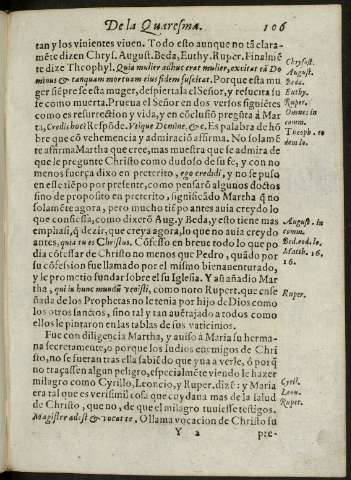 De la Quaresma. 106
tan y los viuientes viuen. Todo esto aunque no tã clara-
mẽte dizen Chrys. August. Beda, Euthy. Ruper. Finalmẽ
te dize Theophyl. Quia mulier adhuc erat mulier, excitat eã Do
minus &amp; tanquam mortuam eius fidem suscitat. Porque esta mu
ger siẽpre se esta muger, despiertala el Señor, y resucita su
fe como muerta. Prueua el Señor en dos versos siguiẽtes
como es resurrection y vida, y en cõclusiõ pregũta à Mar
ta, Credis hoc? Respõde. Vtique Domine, &amp;c. Es palabra de hõ
bre que cõ vehemencia y admiraciõ affirma. No solamẽ
te affirma Martha que cree, mas muestra que se admira de
que le pregunte Christo como dudoso de su fe, y con no
menos fuerça dixo en preterito, ego credidi, y no se puso
en este tiẽpo por presente, como pensarõ algunos doctos
sino de proposito en preterito, significãdo Martha q̃ no
solamẽte agora, pero mucho tiẽpo antes auia creydo lo
que confiessa, como dixerõ Aug. y Beda, y esto tiene mas
emphasi, q̃ dezir, que creya agora, lo que no auia creydo
antes, quia tu es Christus. Cõfesso en breve todo lo que po
dia cõfessar de Christo no menos que Pedro, quãdo por
su cõfesion fue llamado por el mismo bienauenturado,
y le prometio fundar sobre el su Iglesia. Y añadio Mar
tha, qui in hunc mundũ venisti, como noto Rupert. que ense
ñada de los Prophetas no le tenia por hijo de Dios como
los otros sanctos, sino tal y tan auẽtajado a todos como
ellos le pintaron en las tablas de sus vaticinios.
Fue con diligencia Martha, y auiso a Maria su herma-
na secretamente, o porque los Iudios enemigos de Chri
sto, no se fueran tras ella sabiẽdo que yua a verle, ó porq̃
no traçassen algun peligro, especialmẽte viendo le hazer
milagro como Cyrillo, Leoncio, y Ruper. dizẽ: y Maria
era tal que es verisimil cosa que cuydaua mas de la salud
de Christo, que no, de que el milagro tuuiesse testigos.
Magister adest &amp; vocat te. O llama vocacion de Christo su
Y 2 pre-
Chrysost.
August.
Beda.
Euthy.
Ruper.
Omnes in
comm.
Theoph.
August. in
comm.
Matth. 16.
16.
Ruper.
Cyril.
Leon.
Ruper.